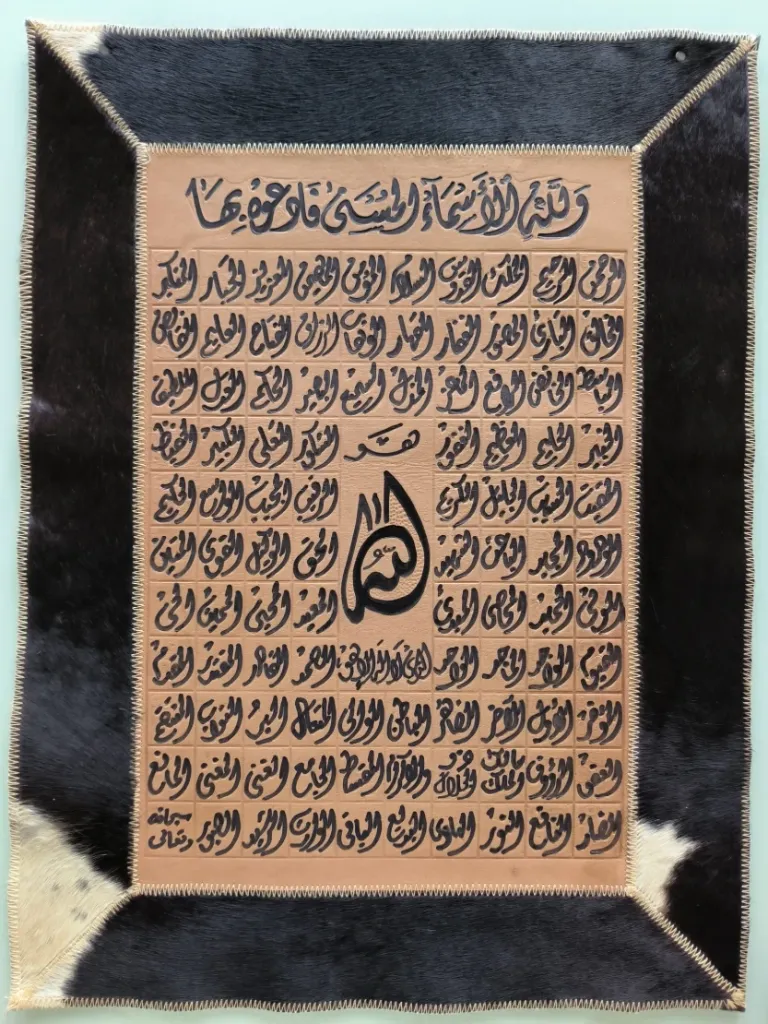 ولله الأسماء الحسنى فادعوه بها
الرحمن الرحيم الملك القدوس السلام المؤمن المهيمن العزيز الجبار المتكبر
الخالق البارئ المصور الغفار القهار الوهاب الرزاق الفتاح العليم القابض
الباسط الخافض الرافع المعز المذل السميع البصير الحكم العدل اللطيف
الخبير الحليم العظيم الغفور هو الشكور العلي الكبير الحفيظ
المقيت الحسيب الجليل الكريم الرقيب المجيب الواسع الحكيم
الله
الودود المجيد الباعث الشهيد الحق الوكيل القوي المتين
الولي الحميد المحصي المبدئ المعيد المحيي المميت الحي
القيوم الواجد الماجد الواحد الذي لا إله إلا هو الصمد القادر المقتدر المقدم
المؤخر الأول الآخر الظاهر الباطن الوالي المتعال البر التواب المنتقم
العفو الرؤوف مالك الملك ذو الجلال والإكرام المقسط الجامع الغني المغني المانع
الضار النافع النور الهادي البديع الباقي الوارث الرشيد الصبور سبحانه وتعالى